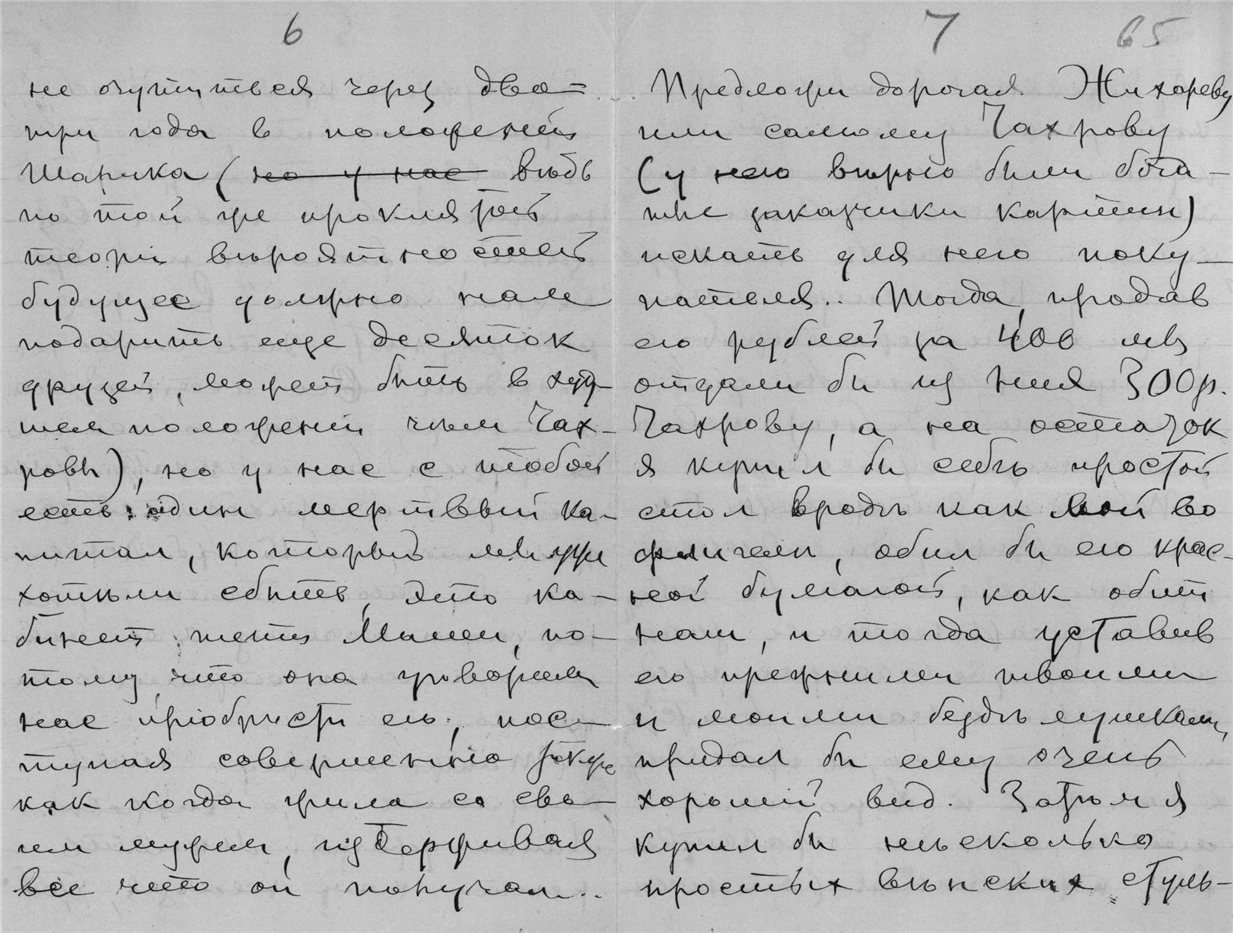 6
не очутиться через два=
три года в положеніи
Шарика (но у нас вѣдь
по той же проклятой
теоріи вѣроятностей
будущее должно нам
подарить еще десяток
друзей, может быть в худ-
шем положеніи чѣм Чах-
ровы), но у нас с тобой
есть один мертвый ка-
питал, который мы уже
хотѣли сбыть, это ка-
бинет тети Мани, по-
тому что она уговорила
нас пріобрѣсти его, пос-
тупая совершенно также
как когда жила со сво-
им мужем, издерживая
все что он получал..
7 65
Предложи дорогая Жихареву
или самому Чахрову
(у него вѣрно были бога-
тые заказчики картин)
искать для него поку-
пателя.. Тогда, продав
его рублей за 400 мы
отдали бы из них 300р.
Чахрову, а на остаток
я купил бы себѣ простой
стол вродѣ как мой во
флигели, обил бы его крас-
ной бумагой, как обит
наш, и тогда уставив
его прежними твоими
и моими бездѣлушками,
придал бы ему очень
хорошій вид. Затѣм я
купил бы нѣсколько
простых вѣнских стуль-